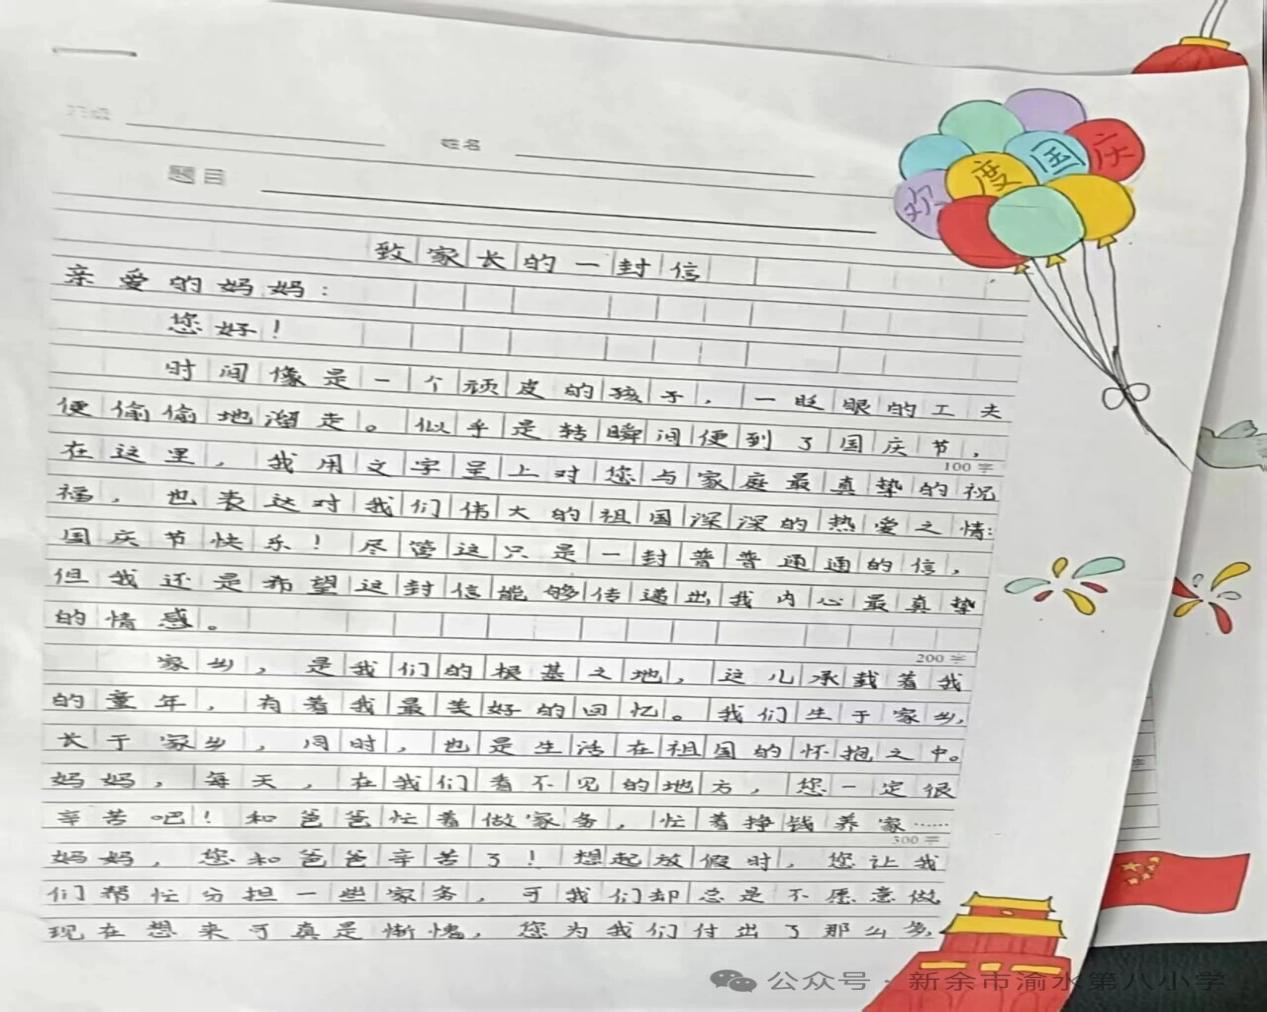 姓名
题目
欢度国庆
致家长的一封信
亲爱的妈妈：
您好！
时间像是一个顽皮的孩子，一眨眼的工夫
便偷偷地溜走。似乎是转瞬间便到了国庆节，
100字
在这里，我用文字呈上对您与家庭最真挚的祝
福，也表达对我们伟大的祖国深深的热爱之情：
国庆节快乐！尽管这只是一封普普通通的信，
但我还是希望这封信能够传递出我内心最真挚
的情感。
200字
家乡，是我们的根基之地，这儿承载着我
的童年，有着我最美好的回忆。我们生于家乡，
长于家乡，同时，也是生活在祖国的怀抱之中。
妈妈，每天，在我们看不见的地方，您一定很
辛苦吧！和爸爸忙着做家务，忙着挣钱养家……
300字
妈妈，您和爸爸辛苦了！想起放假时，您让我
们帮忙分担一些家务，可我们却总是不愿意做
现在想来可真是惭愧，您为我们付出了那么多，
公众号·新余市渝水第八小学